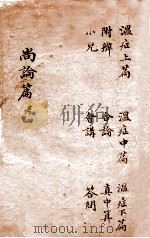 溫症上篇 溫症中篇 溫症下篇
附 合論 真中
小兒 會講 答問
尚論篇